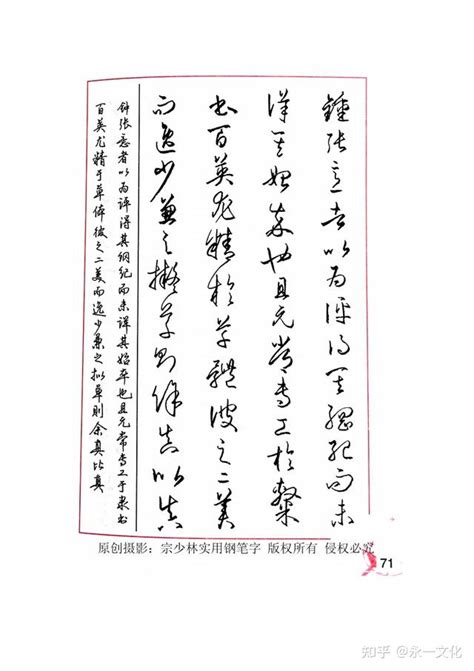 鍾張意者以为评得其綱紀而未
详其始卒也且元常专工於隸
书百英尤精於草體彼之二美
而逸少兼之擬草则餘真比真
钟张意者以为评得其纲纪而未详其始卒也且元常专工于隶书
百英尤精于草体彼之二美而逸少兼之拟草则余真比真
原创摄影：宗少林实用钢笔字 版权所有 侵权必究
71
知乎 @永一文化